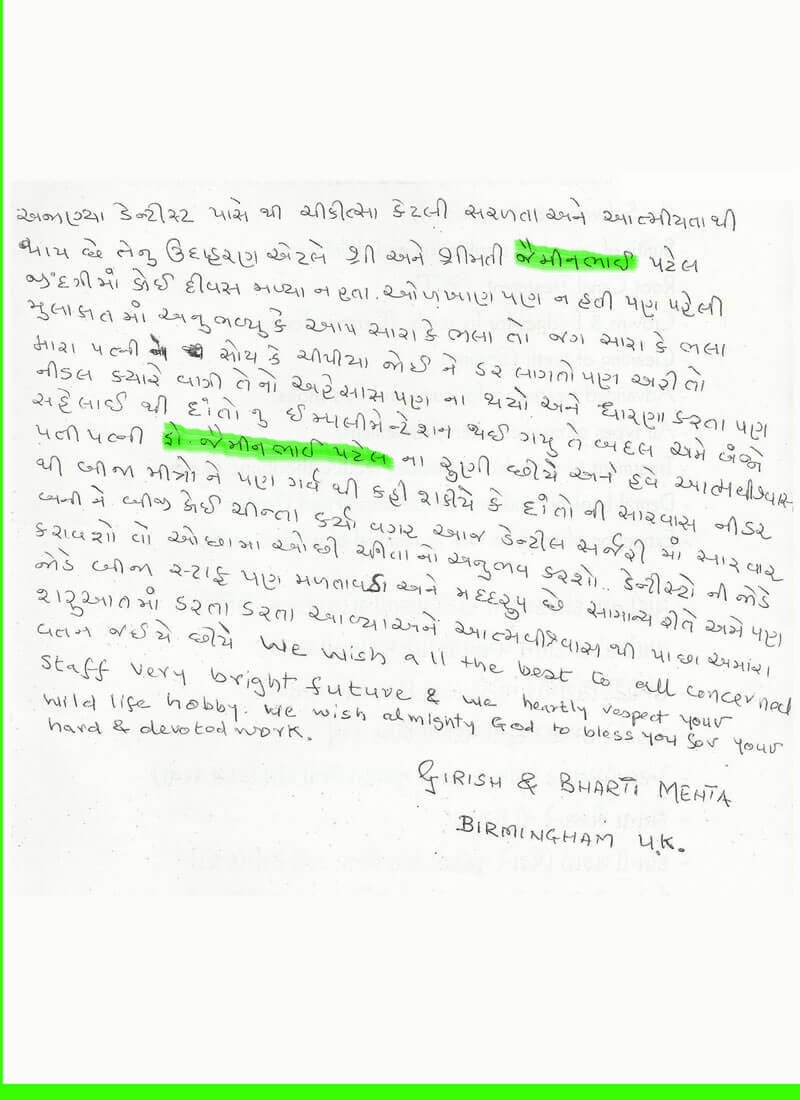 અજાણ્યા ડેન્ટીસ્ટ પાસે થી ચીકીત્સા કેટલી સરળતા અને આત્મીયતા થી
થાય છે તેનુ ઉદાહરણ એટલે શ્રી અને શ્રીમતી જૈમીનભાઈ પટેલ
જીંદગીમાં કોઈ દીવસ મળ્યા ન હતા. ઓળખાણ પણ ન હતી પણ પહેલી
મુલાકાત માં અનુભવ્યુ કે આપ સારા કે ભલા તો જગ સારા કે ભલા
મારા પત્ની ને સોય કે ચીપીયા જોઈ ને ડર લાગતો પણ અહીં તો
નીડલ ક્યારે વાગી તેનો અહેસાસ પણ ના થયો. અને ધારણા કરતા પણ
સહેલાઈ થી દાંતો નુ ઈમ્પલીમેન્ટેશન થઈ ગયુ તે બદલ અમે બંન્ને
પતી પત્ની ડો. જૈમીનભાઈ પટેલ ના રુણી છીયે અને હવે આત્મવીશ્વાસ
થી બીજા મીત્રો ને પણ ગર્વ થી કહી શકીયે કે દાંતો ની સારવાસ નીડર
બની ને બીજી કોઈ ચીન્તા કર્યા વગર આજ ડેન્ટીલ સર્જરી માં સારવાર
કરાવશો તો ઓછામા ઓછી પીડાનો અનુભવ કરશો.. ડેન્ટીસ્ટો ની જોડે
જોડે બીજા સ્ટાફ પણ મળતાવડા અને મદદરુપ છે સામાન્ય રીતે અમે પણ
શરુઆતમાં ડરતા ડરતા આવ્યા અને આત્મવીશ્વાસ થી પાછા અમારા
વતન જઈયે છીયે We wish all the best to all concerned
staff very bright future & we heartly respect your
wild life hobby. We wish almighty God to bless you for your
hard & devoted work.
GIRISH & BHARTI MEHTA
BIRMINGHAM U.K.